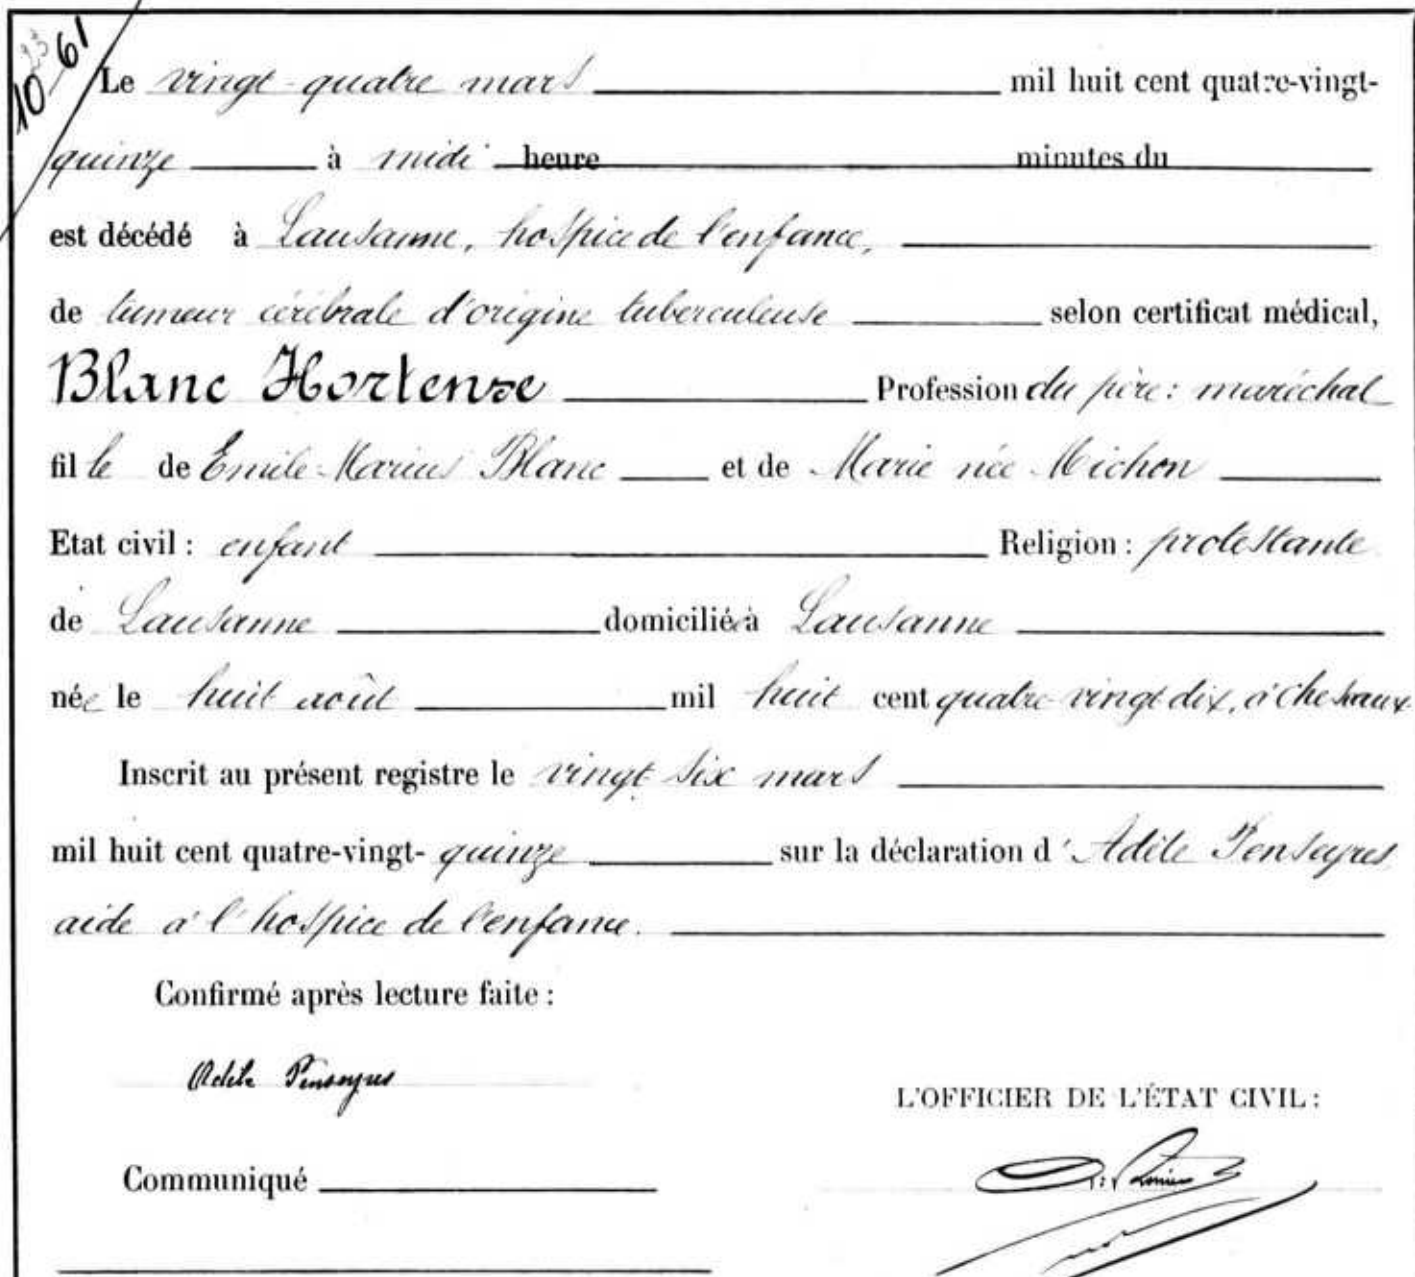 10 61
Le vingt-quatre mars mil huit cent quatre-vingt-
quinze à midi heure minutes du
est décédé à Lausanne, hospice de l'enfance,
de tumeur cérébrale d'origine tuberculeuse selon certificat médical,
Blanc Hortense Profession du père: maréchal
fille de Emile-Marius Blanc et de Marie née Michon
Etat civil : enfant Religion : protestante
de Lausanne domicilié à Lausanne
née le huit août mil huit cent quatre vingt dix, à Cheseaux
Inscrit au présent registre le vingt six mars
mil huit cent quatre-vingt- quinze sur la déclaration d'Adèle Penseyres
aide à l'hospice de l'enfance.
Confirmé après lecture faite :
Adèle Penseyres
L'OFFICIER DE L'ÉTAT CIVIL :
Communiqué